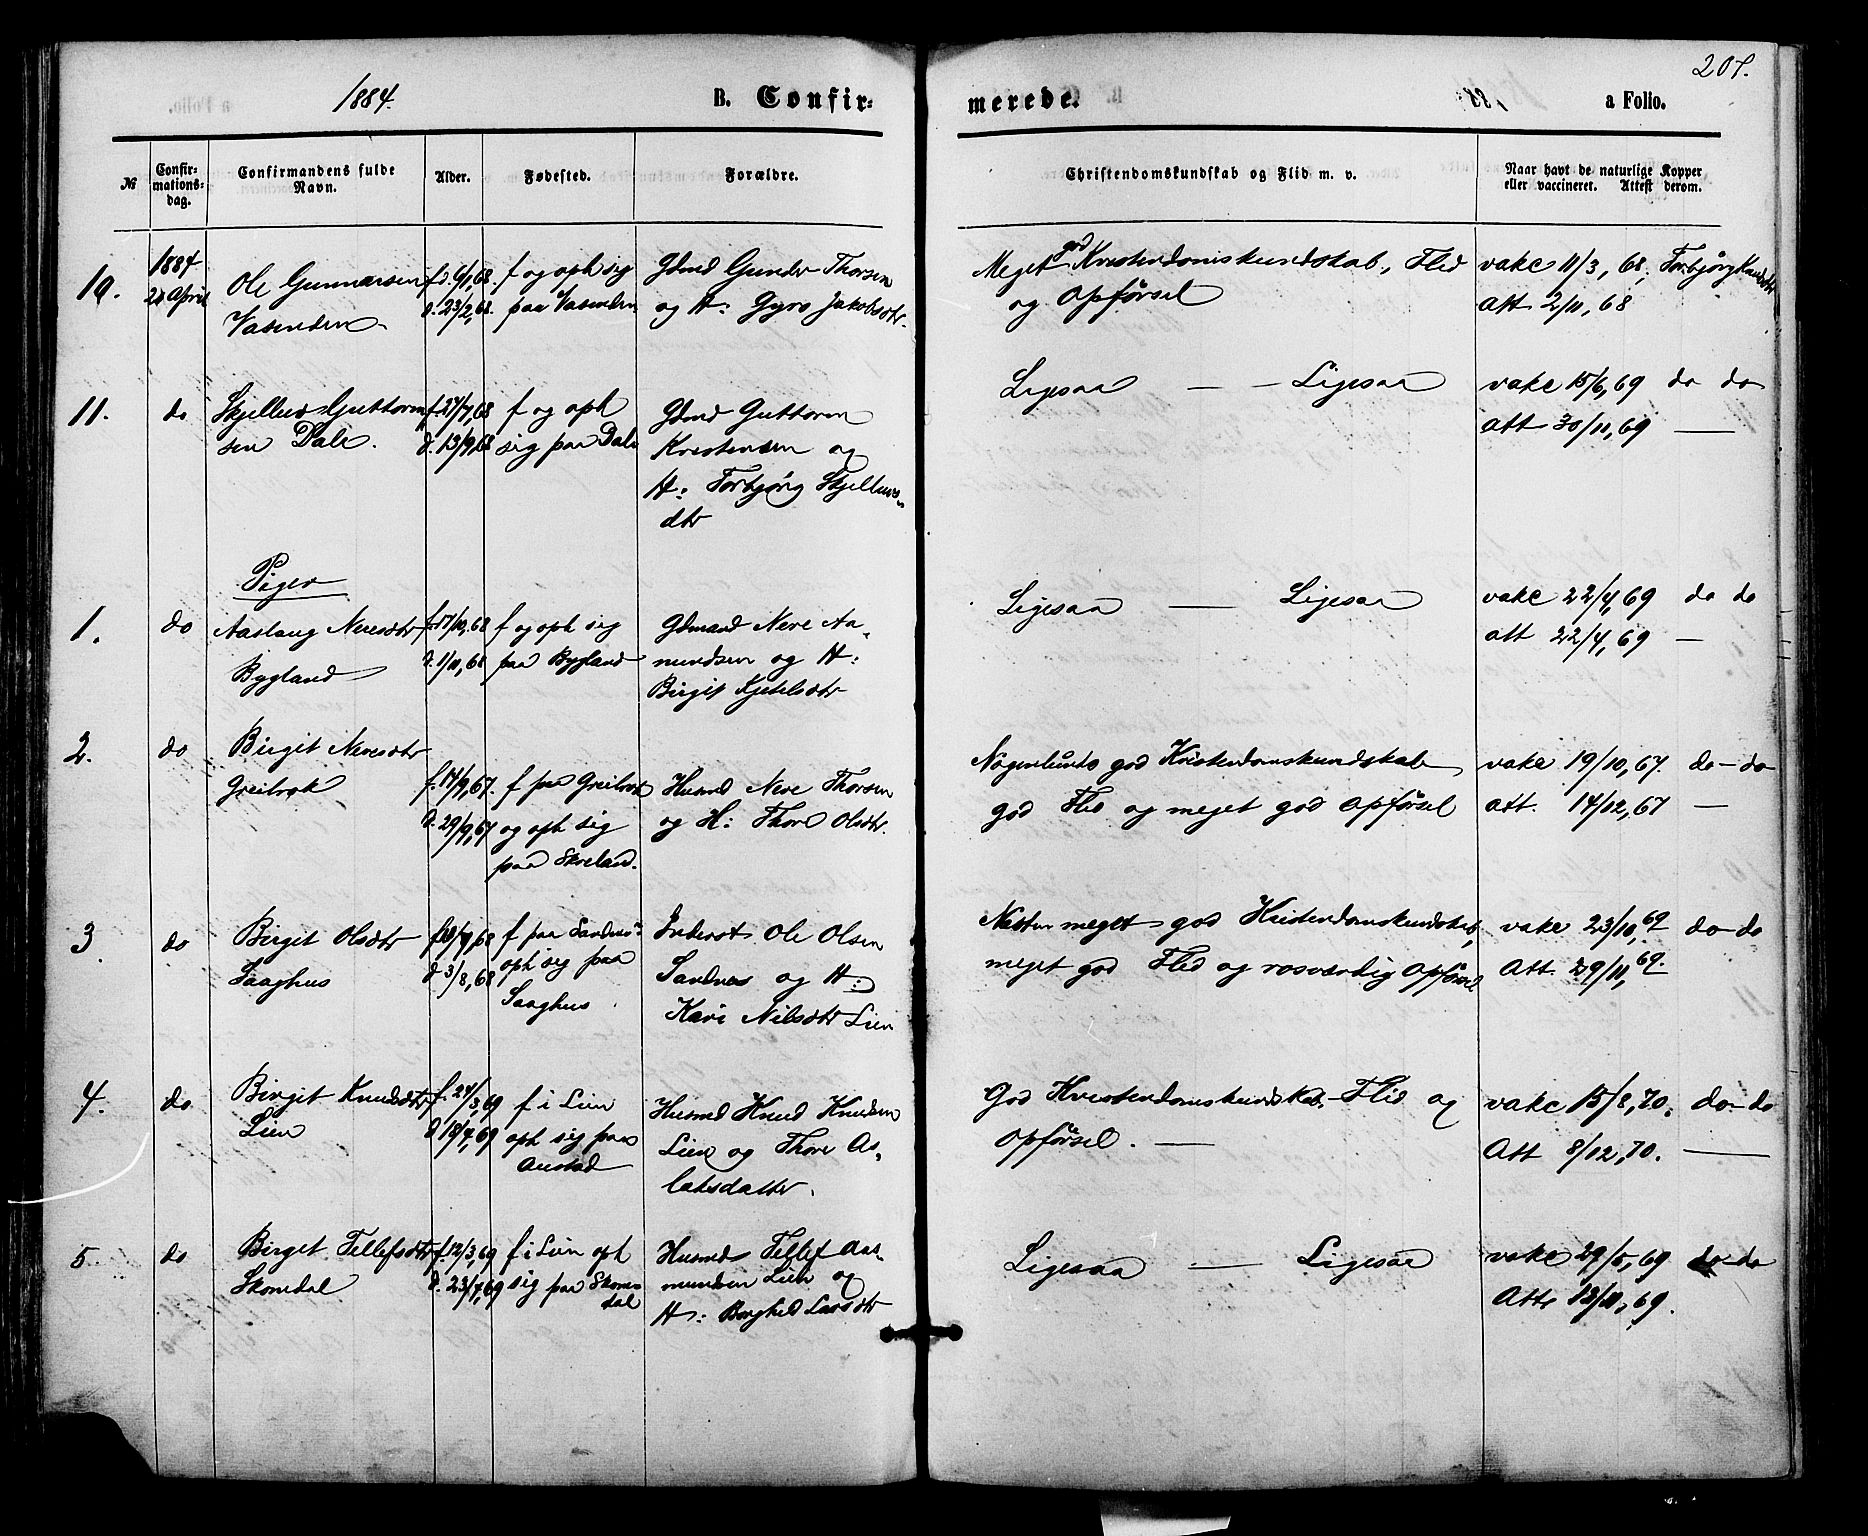 207.
1884.
B. Confir-
merede.
a Folio.
№
Confir-
mations-
dag.
Confirmandens fulde
Navn.
Alder.
Fødested.
Forældre.
Christendomskundskab og Flid m. v.
Naar havt de naturlige Kopper
eller vaccineret. Attest derom.
10.
1884
20 April
Ole Gunnarsen
Vasenden
f. d. 6/1, 68.
d. 23/2, 68.
f og oph sig
paa Vasenden
Gdmd Gunder Thorsen
og H: Gyro Jakobsdtr.
Meget god Kristendomskundskab, Flid
og Opførsel
vakc 11/3, 68, Torbjørg Knudsdtr
Att 2/11, 68
11.
do
Skjellus Guttorm
sen Dale.
f. 27/7, 68
d. 13/9, 68
f og oph
sig paa Dale
Gdmd Guttorm
Kristensen og
H: Torbjørg Skjellus-
dtr
Ligesaa — — Ligesaa
vakc 15/6, 69 do do
Att 30/11, 69 —
Piger
1.
do
Aaslaug Neresdtr
Bygland
f. 17/10, 68
d. 1/11, 68
f og oph sig
paa Bygland
Gdmand Nere Aa-
mundsen og H:
Birgit Kjetelsdtr
Ligesaa — Ligesaa
vakc 22/4, 69 do do
att 22/4, 69 —
2.
do
Birgit Neresdtr
Greibrok
f. 14/9, 67.
d. 29/9, 67
f paa Greibrok
og oph sig
paa Skreland.
Husmd Nere Thorsen
og H: Thore Olsdtr.
Nogenlunde god Kristendomskundskab
god Flid og meget god Opførsel
vakc 19/10, 67. do — do
att. 14/12, 67 —
3
do
Birget Olsdtr
Saaghus
d 3/8, 68
f paa Sandnes
oph sig paa
Saaghus
Inderst Ole Olsen
Sandnes og H:
Kari Nilsdtr Lien
Næsten meget god Kristendomskundskab,
meget god Flid og rosværdig Opførsel
vakc 23/10, 69 do — do
Att. 29/11, 69.
4.
do
Birgit Knudsdtr
Lien
f. 24/3, 69
d 18/7, 69
f i Lien
oph sig paa
Austad
Husmd Knud Knudsen
Lien og Thore As-
laksdatter.
God Kristendomskundskab. Flid og
Opførsel. —
vakc 15/8, 70. do — do
Att 8/12, 70. —
5.
do
Birget Tellefsdtr
Skomedal
f. 12/3, 69
d. 23/7, 69
f i Lien oph
sig paa Skome-
dal
Husmd Tellef Aas-
mundsen Lien og
H: Borghild Larsdtr
Ligesaa — Ligesaa
vakc 29/5, 69 do — do
Att 12/11, 69.